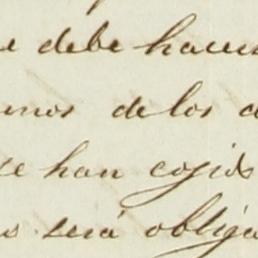 e debe hacers
enos de los a
se han cogido
os será obliga